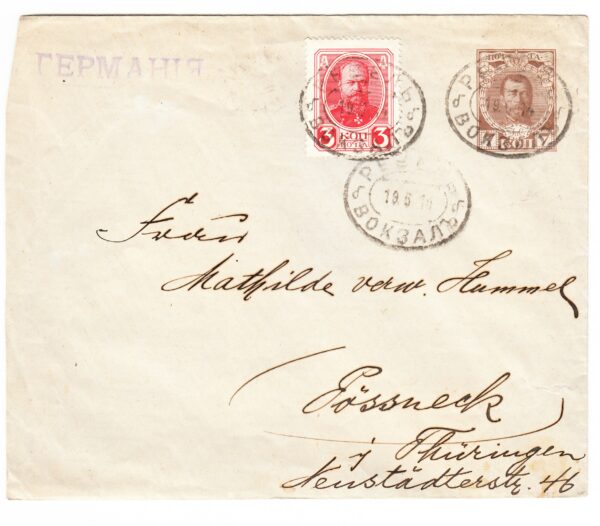 ГЕРМАНІЯ
3 КОП 3
7 КОП 7
19.5.14
ВОКЗАЛЪ
Frau
Mathilde verw. Hummel
Pössneck
i Thüringen
Neustädterstr. 46